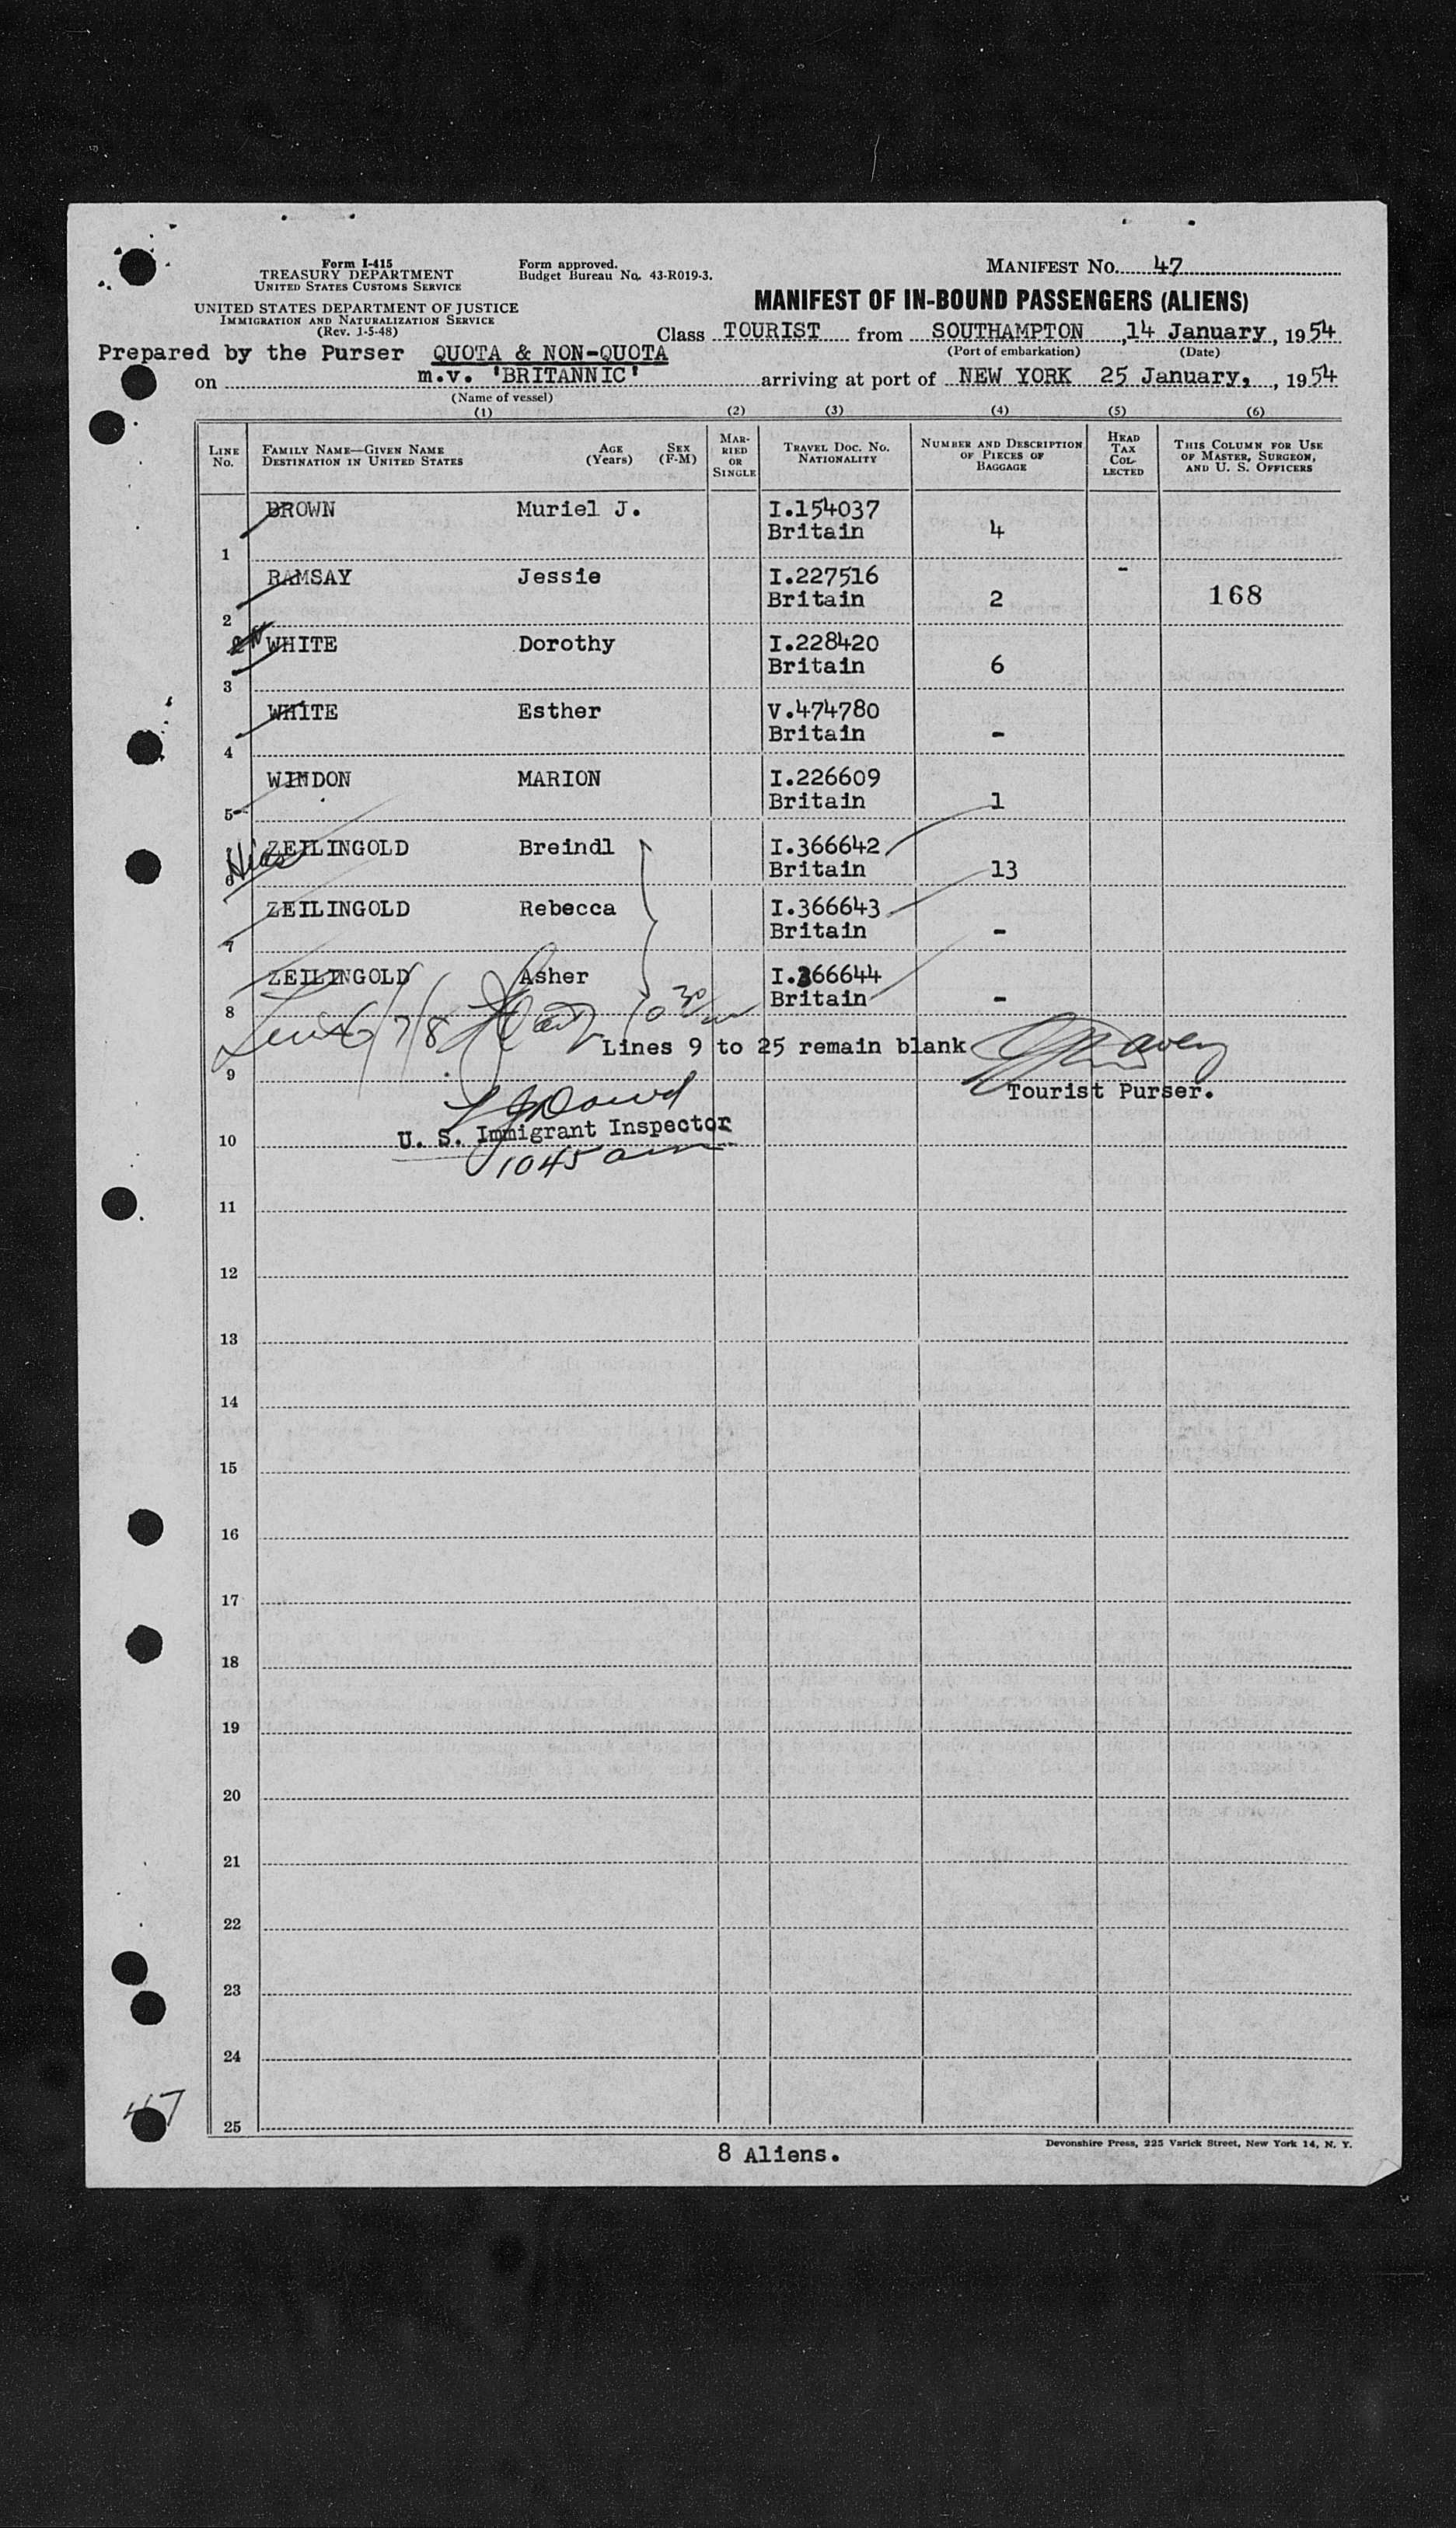 Form I-415
TREASURY DEPARTMENT
UNITED STATES CUSTOMS SERVICE
UNITED STATES DEPARTMENT OF JUSTICE
IMMIGRATION AND NATURALIZATION SERVICE
(Rev. 1-5-48)
Form approved.
Budget Bureau No. 43-R019-3.
MANIFEST NO. 47
MANIFEST OF IN-BOUND PASSENGERS (ALIENS)
Class TOURIST from SOUTHAMPTON, 14 January, 1954
(Port of embarkation) (Date)
Prepared by the Purser QUOTA & NON-QUOTA
on m.v. 'BRITANNIC' arriving at port of NEW YORK 25 January, , 1954
(Name of vessel)
(1) (2) (3) (4) (5) (6)
LINE NO. FAMILY NAME—GIVEN NAME DESTINATION IN UNITED STATES AGE (Years) SEX (F-M) MARRIED OR SINGLE TRAVEL DOC. NO. NATIONALITY NUMBER AND DESCRIPTION OF PIECES OF BAGGAGE HEAD TAX COLLECTED THIS COLUMN FOR USE OF MASTER, SURGEON, AND U. S. OFFICERS
1 BROWN Muriel J. I.154037 Britain 4
2 RAMSAY Jessie I.227516 Britain 2 - 168
3 WHITE Dorothy I.228420 Britain 6
4 WHITE Esther V.474780 Britain -
5 WINDON MARION I.226609 Britain 1
6 ZEILINGOLD Breindl I.366642 Britain 13
7 ZEILINGOLD Rebecca I.366643 Britain -
8 ZEILINGOLD Asher I.366644 Britain -
6/7/8 10 30
Lines 9 to 25 remain blank
9
Tourist Purser.
U. S. Immigrant Inspector
10
1045 am
11
12
13
14
15
16
17
18
19
20
21
22
23
24
47
25
8 Aliens.
Devonshire Press, 225 Varick Street, New York 14, N. Y.